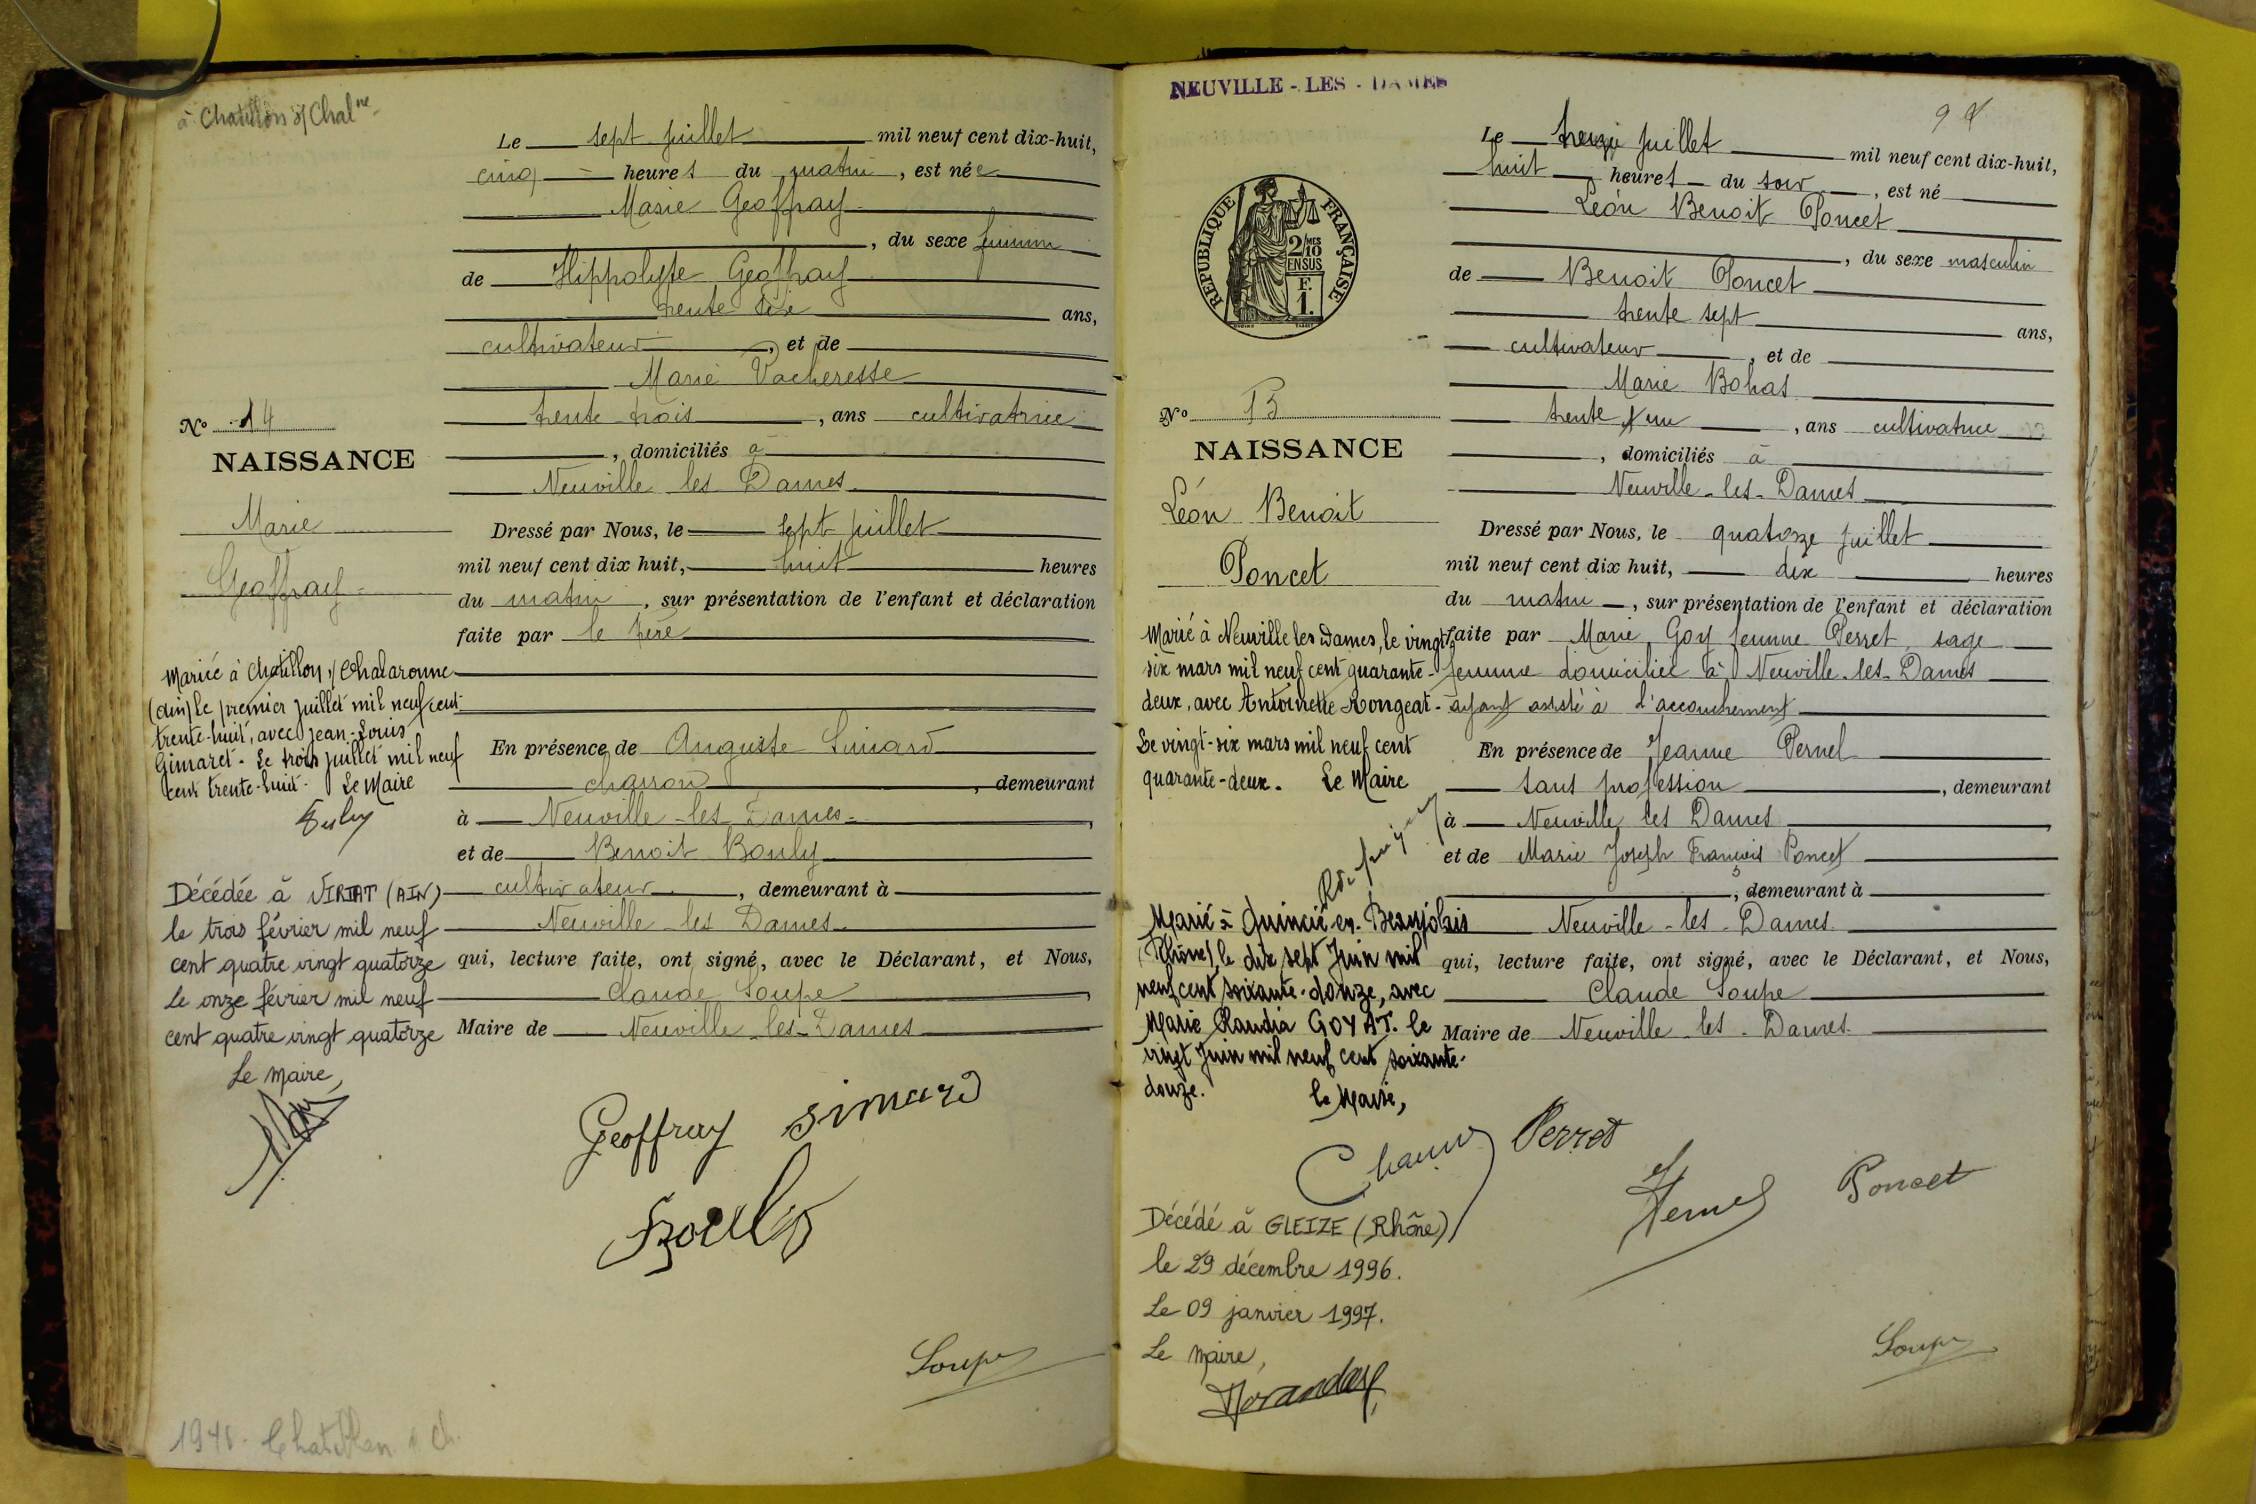 à Chatillon s/ Chalne
Le sept juillet mil neuf cent dix-huit,
cinq heures du matin, est née
Marie Geoffray
, du sexe féminin
de Hippolyte Geoffray
trente six ans,
cultivateur, et de
Marie Vacheresse
trente trois, ans cultivatrice
, domiciliés à
Neuville les Dames
No 14
NAISSANCE
Marie
Geoffray
Dressé par Nous, le sept juillet
mil neuf cent dix huit, huit heures
du matin, sur présentation de l'enfant et déclaration
faite par le père
Mariée à Chatillon s/ Chalaronne
(Ain) le premier juillet mil neuf cent
trente-huit, avec Jean-Louis
Gimaret - Le trois juillet mil neuf
cent trente-huit. Le Maire
En présence de Auguste Simard
charron, demeurant
à Neuville-les-Dames
et de Benoit Bouly
cultivateur, demeurant à
Neuville les Dames
qui, lecture faite, ont signé, avec le Déclarant, et Nous,
Claude Soupe
Maire de Neuville-les-Dames
Décédée à VIRIAT (AIN)
le trois février mil neuf
cent quatre vingt quatorze
Le onze février mil neuf
cent quatre vingt quatorze
Le Maire,
Geoffray Simard
Bouly
Soupe
Chatillon
NEUVILLE - LES - DAMES
RÉPUBLIQUE FRANÇAISE
2/10 MES
EN SUS
F.
1.
Le treize juillet mil neuf cent dix-huit,
huit heures du soir, est né
Léon Benoit Poncet
, du sexe masculin
de Benoit Poncet
trente sept ans,
cultivateur, et de
Marie Bohas
trente un, ans cultivatrice
, domiciliés à
Neuville-les-Dames
No 15
NAISSANCE
Léon Benoit
Poncet
Dressé par Nous, le quatorze juillet
mil neuf cent dix huit, dix heures
du matin, sur présentation de l'enfant et déclaration
faite par Marie Goy femme Perret sage
femme domiciliée à Neuville-les-Dames
ayant assisté à l'accouchement
Marié à Neuville les Dames, le vingt
six mars mil neuf cent quarante-
deux, avec Antoinette Rongeat -
Le vingt-six mars mil neuf cent
quarante-deux. Le Maire
En présence de Jeanne Pernel
sans profession, demeurant
à Neuville les Dames
et de Marie Joseph François Poncet
, demeurant à
Neuville-les-Dames
qui, lecture faite, ont signé, avec le Déclarant, et Nous,
Claude Soupe
Maire de Neuville-les-Dames
Marié à Quincié-en-Beaujolais
(Rhône), le dix sept Juin mil
neuf cent soixante-douze, avec
Marie Claudia GOYAT. le
vingt Juin mil neuf cent soixante-
douze.
le Maire,
Perret
Pernel Poncet
Décédé à GLEIZE (Rhône)
le 29 décembre 1996.
Le 09 janvier 1997.
Le Maire,
Soupe